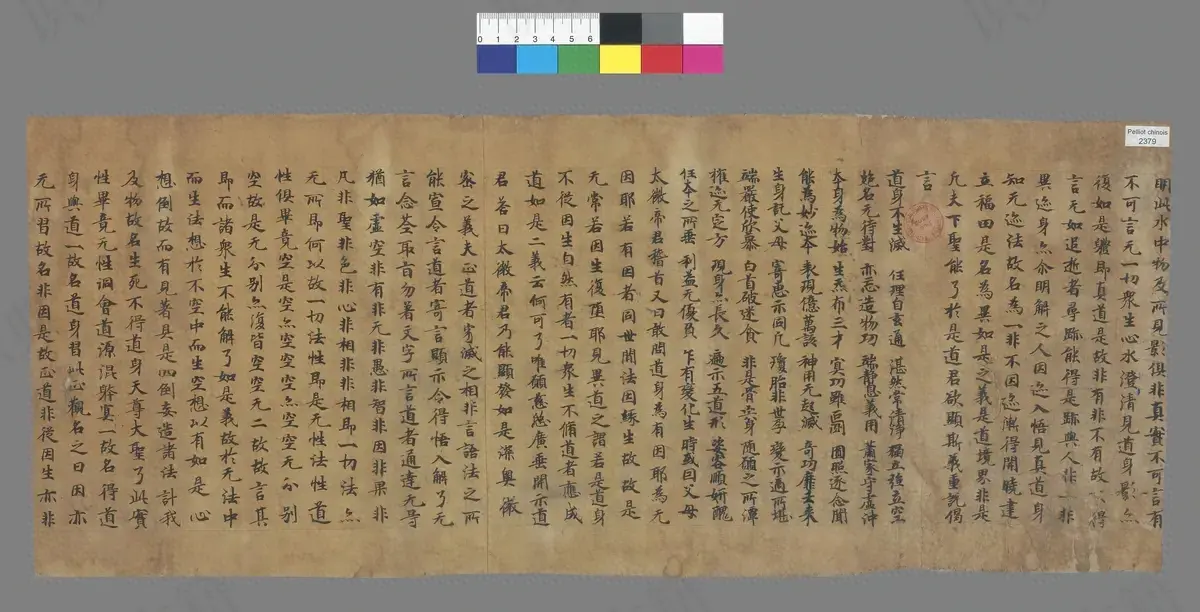 Pelliot chinois
2379
0 1 2 3 4 5 6
明此水中物及所見影俱非真實不可言有
不可言无一切衆生心水澄清見道身影亦
復如是體即真道是故非有非不有故不得
言无如迹逝者尋跡能得是跡與人非一非
異迹身亦尒明解之人因迹入悟見真道身
知元迹法故名為一非不因迹得開曉建
立福田是名為異如是之義是道境界非是
凡夫下聖能了於是道君欲顯斯義重說偈
言
道身不生滅 任理自玄通 湛然常清淨 獨立強立空
絕名无待對 亦忘造物功 端靜息義用 蕭寂守虛沖
本身為物始 生炁布三才 冥功雖區 圓照逐念開
能為妙迹本 表現億萬該 神用无起滅 奇功靡去來
生身託父母 寄惠示同凡 瓊胎非世孕 變示適所堪
端嚴使欣慕 白首破迷貪 非是骨血身 隨願之所潭
權迹无定方 現身亦長久 遍示五道形 姿容順妍醜
任本之所垂 利益无優負 乍有變化生 時或因父母
太微帝君稽首又白敢問道身為有因耶為无
因耶若有因者同世間法因緣生故故是
无常若因生復墮耶見異道之謂若是道身
不從因生自然有者一切衆生不脩道者應成
道如是二義云何可了唯願慈悲廣垂開示道
君荅曰太微帝君乃能顯發如是深奧微
密之義夫正道者寂滅之相非言語法之所
能宣今言道者寄言顯示令得悟入解了无
言念筌取旨勿著文字所言道者通達无导
猶如虛空非有非无非愚非智非因非果非
凡非聖非色非心非相非非相即一切法亦
无所即何以故一切法性即是无性法性道
性俱畢竟空是空亦空空亦空空无分別
空故是无分別亦復皆空空无二故故言其
即而諸衆生不能解了如是義故於无法中
而生法想於不空中而生空想以有如是心
想倒故而有見著具是四倒妄造諸法計我
及物故名生死不得道身天尊大聖了此實
性畢竟无性洞會道源混躰冥一故名得道
身與道一故名道身習此正觀名之曰因亦
无所習故名非因是故正道非從因生亦非